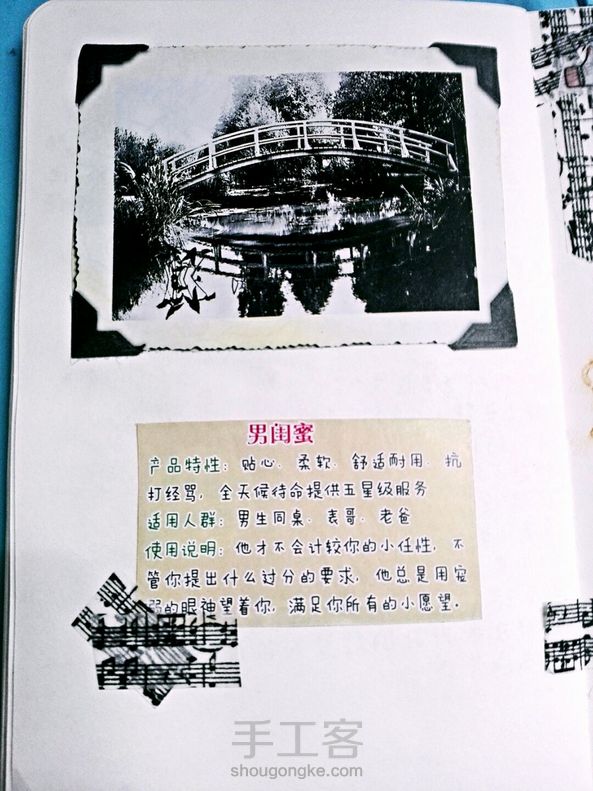 男闺蜜
产品特性：贴心、柔软、舒适耐用、抗
打经骂，全天候待命提供五星级服务
适用人群：男生同桌、表哥、老爸
使用说明：他才不会计较你的小任性，不
管你提出什么过分的要求，他总是用宠
溺的眼神望着你，满足你所有的小愿望。
手工客
shougongke.com